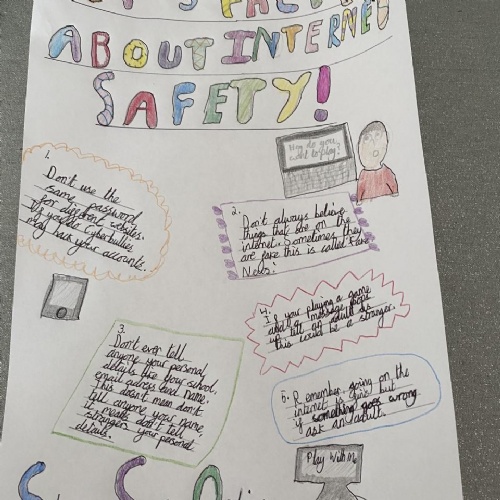 ABOUT INTERNET
SAFETY!
How do you
want to play?
1.
Don't use the
same password
for different websites.
If you do cyberbullies
may hack your accounts.
2.
Don't always believe
things that are on the
internet. Sometimes they
are fake this is called Fake
News!
4.
If your playing a game
and a message pops
up tell an adult as
this could be a stranger.
3.
Don't ever tell
anyone your personal
details like your school,
email adress and name.
This doesn't mean don't
tell anyone your name,
it means don't tell
strangers your personal
details.
5. Remember going on the
internet is fine but
if something goes wrong
ask an adult.
Play With Me